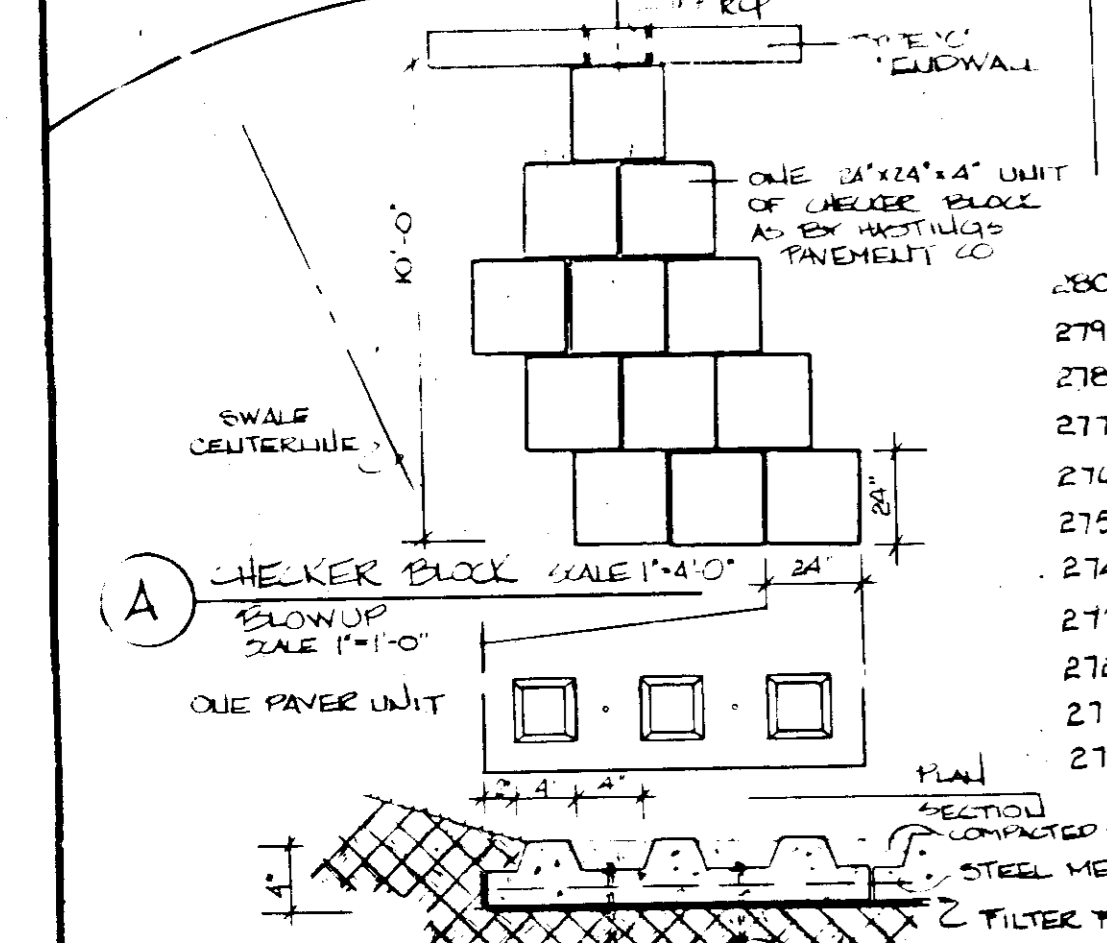 RCP
TYPE 'C'
ENDWALL
ONE 24"x24"x4" UNIT
OF CHECKER BLOCK
AS BY HASTINGS
PAVEMENT CO
10'-0"
SWALE
CENTERLINE
24"
A
CHECKER BLOCK SCALE 1"=4'-0"
24"
BLOWUP
SCALE 1"=1'-0"
ONE PAVER UNIT
2" 4" 4"
PLAN
SECTION
COMPACTED
STEEL
4"
FILTER
280
279
278
277
275